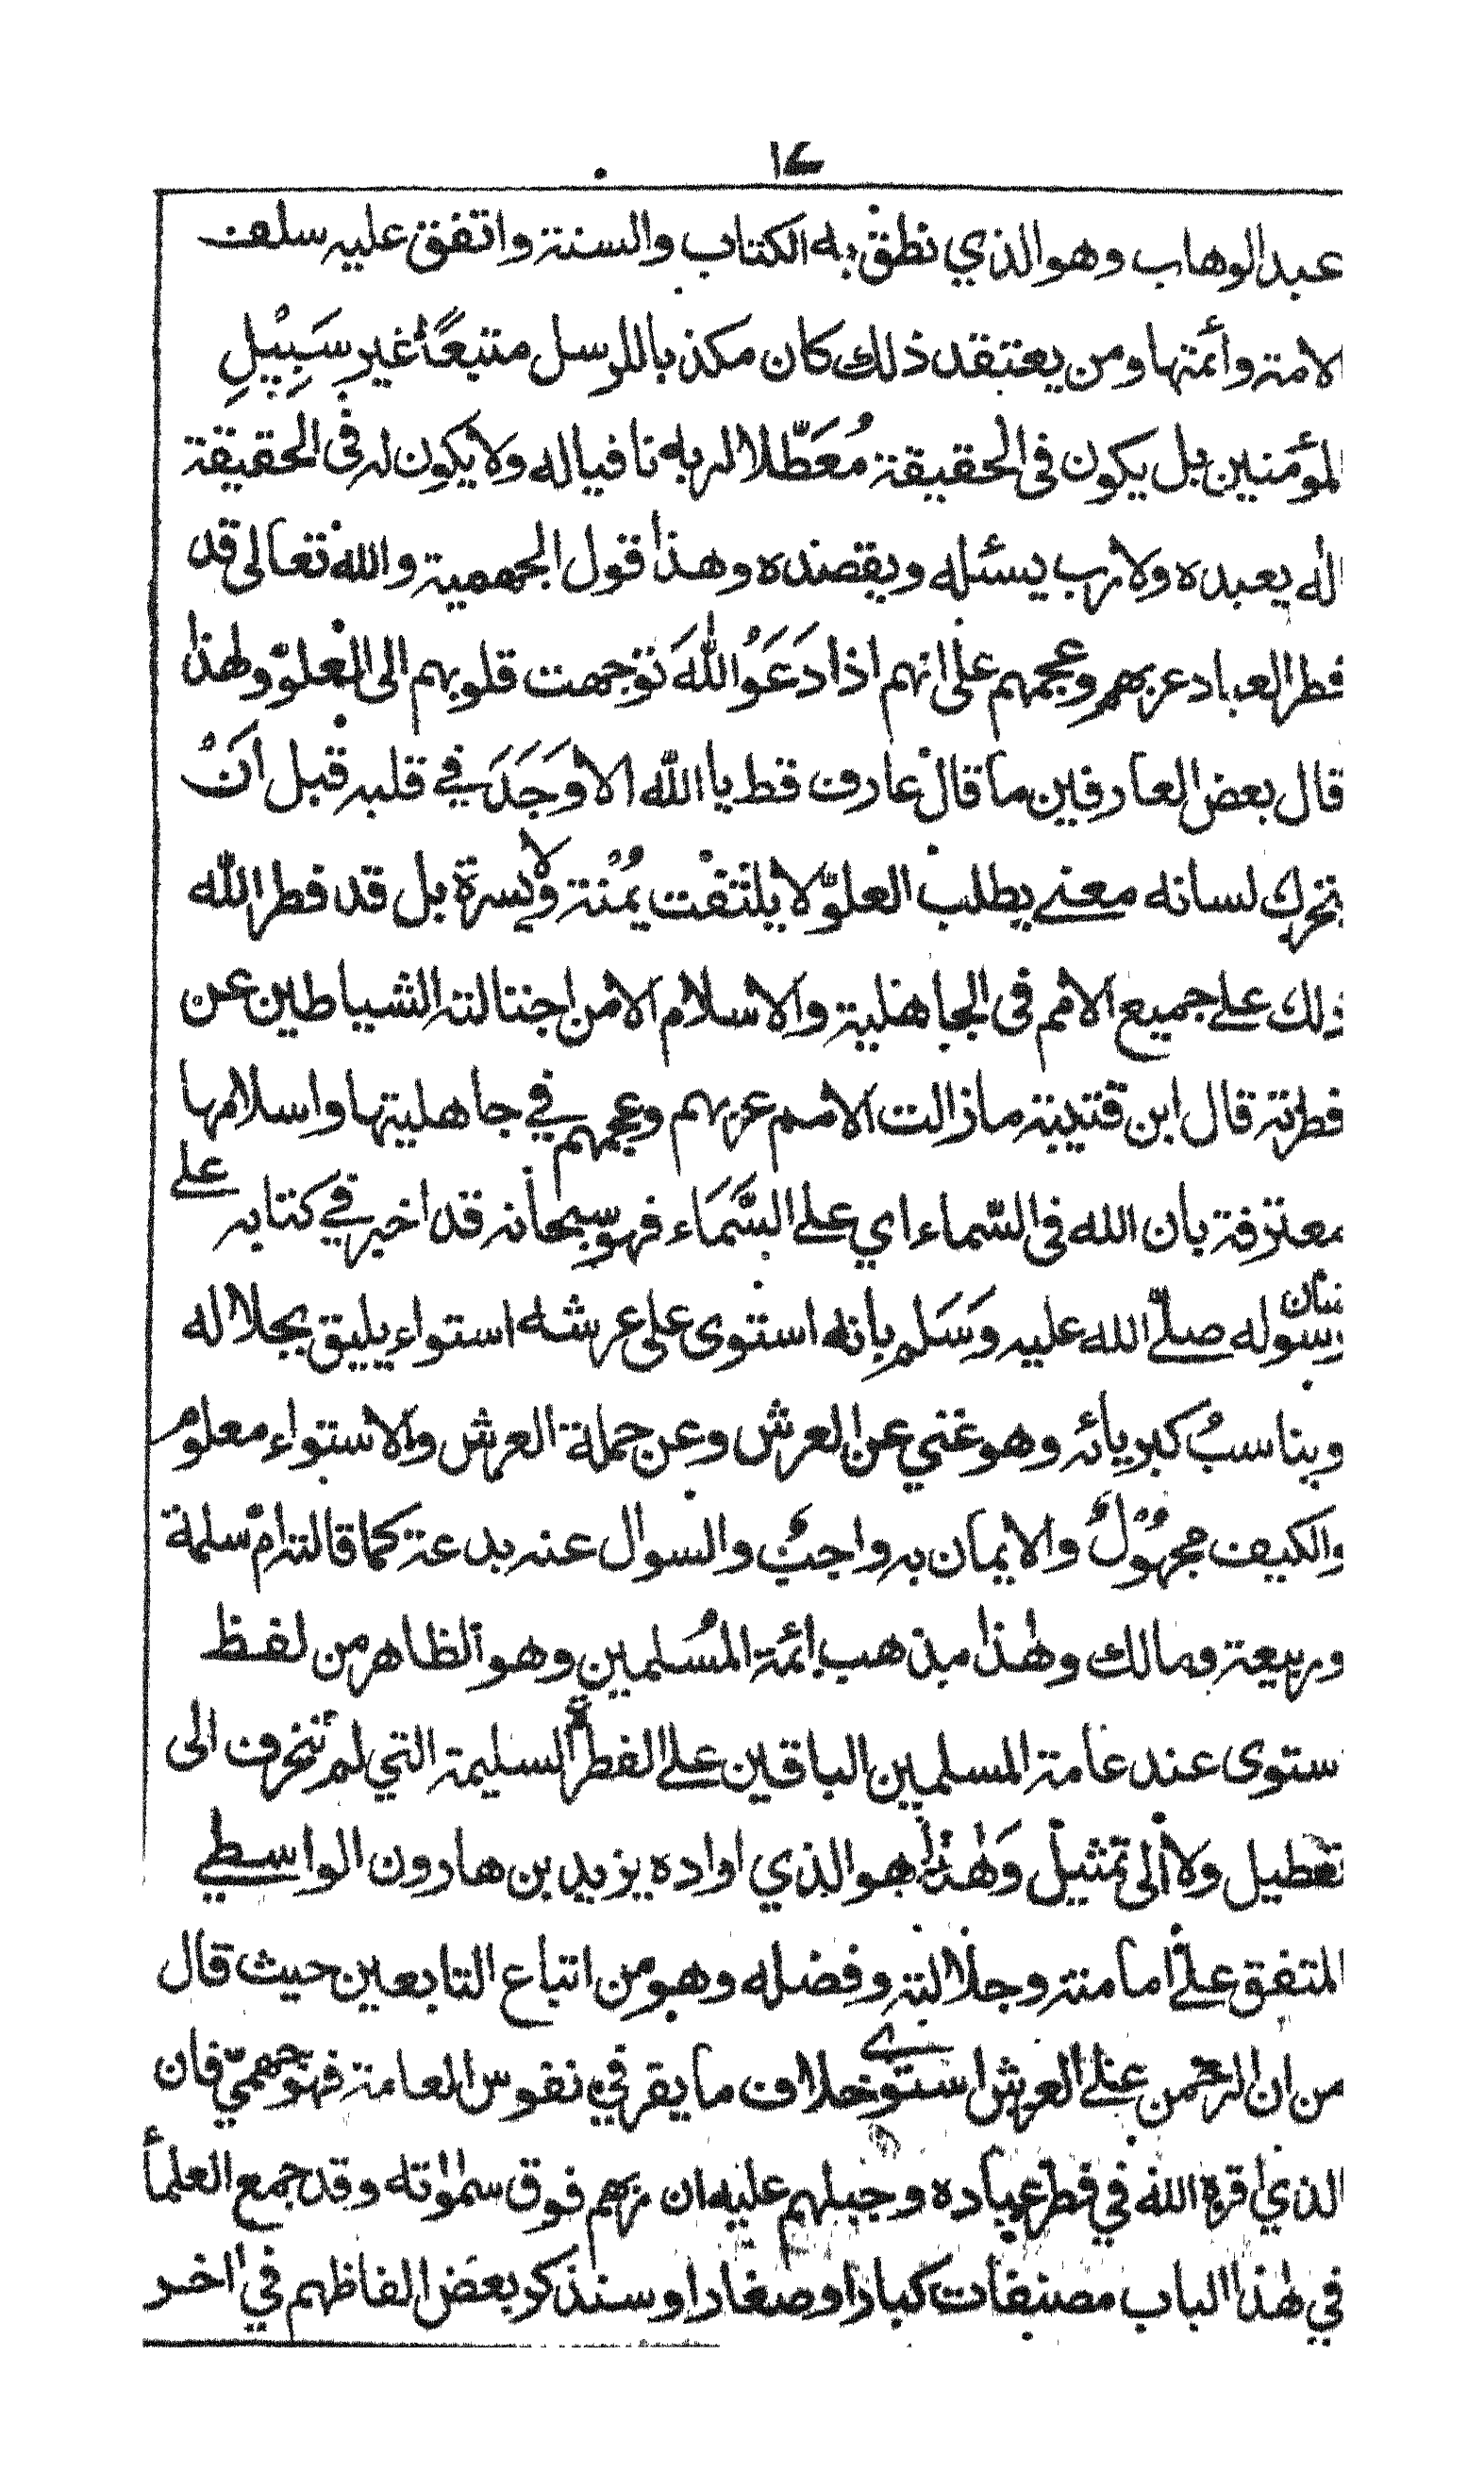 ١٤
عبد الوهاب وهو الذي نطق به الكتاب والسنة واتفق عليه سلف
الامة وأئمتها ومن يعتقد ذلك كان مكذبا للرسل متبعًا غير سَبِيْلِ
المؤمنين بل يكون في الحقيقة مُعَطّلا لربه نافيا له ولا يكون له في الحقيقة
اله يعبده ولا رب يسئله ويقصده وهذا قول الجهمية والله تعالى قد
فطر العباد عربهم وعجمهم على انهم اذا دَعَوُا اللهَ توجهت قلوبهم الى العلوّ ولهذا
قال بعض العارفين ما قال عارف قط يا الله الا وَجَدَ في قلبه قبل اَنْ
يتحرك لسانه معنى يطلب العلوّ لا يلتفت يُمْنة ولا يسرة بل قد فطر الله
ذلك على جميع الامم في الجاهلية والاسلام الا من اجتالته الشياطين عن
فطرته قال ابن قتيبة ما زالت الامم عربهم وعجمهم في جاهليتها واسلامها
معترفة بان الله في السّماء اي على السَّمَاء فهو سبحانه قد اخبر في كتابه على
لسان
رسوله صلّى الله عليه وَسَلم بانه استوى على عرشه استواء يليق بجلاله
ويناسبُ كبريائه وهو غني عن العرش وعن حملة العرش والاستواء معلوم
والكيف مجهُوْلٌ والايمان به واجبٌ والسوال عنه بدعة كما قالته ام سلمة
وربيعة ومالك وهذا مذهب ائمة المُسلمين وهو الظاهر من لفظ
استوى عند عامة المسلمين الباقين على الفطرة السليمة التي لم تنحرف الى
تعطيل ولا الى تمثيل وَهذا هو الذي اواده يزيد بن هارون الواسطي
المتفق على امامته وجلالته وفضله وهو من اتباع التابعين حيث قال
من ان الرحمن على العرش استوى خلاف ما يقر في نفوس العامة فهو جهميّ فان
الذي اقره الله في فطر عباده وجبلهم عليه ان ربهم فوق سمواته وقد جمع العلمأ
في هذا الباب مصنفات كبارا وصغارا وسنذكر بعض الفاظهم في اخر